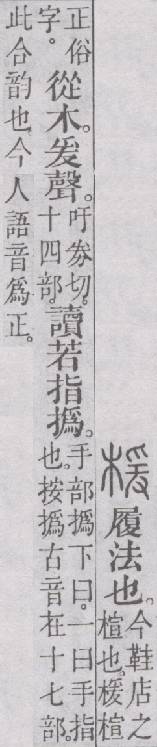 楥履法也。今鞋店之楦也。楥楦
正俗字。從木。爰聲。吁券切。十四部。讀若指撝。手部撝下曰。一曰手指也。按撝古音在十七部。
此合韵也。今人語音爲正。